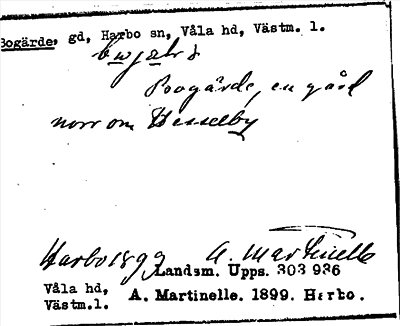 Bogärde, gd, Harbo sn, Våla hd, Västm. l.
Bogärde, en gård
norr om Hesselby
Harbo 1899 A. Martinelle
Landsm. Upps. 303 986
Våla hd,
Västm.l.
A. Martinelle. 1899. Harbo.